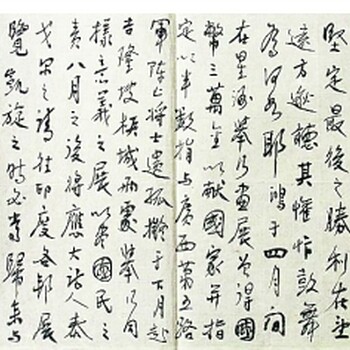 堅定最後之勝利在望
遠方逖聽其懽忭鼓舞
為何如耶鴻于四月間
在星洲舉行畫展曾得國
幣三萬金以献國家并指
定以半數指与廣西第五路
軍陣亡將士遺孤擬于下月赴
吉隆坡檳城兩處舉行同
樣意義之展以尽國民之
責八月之後將應大詩人泰
戈尔之請往印度各部展
覽凱旋之時必當歸來与